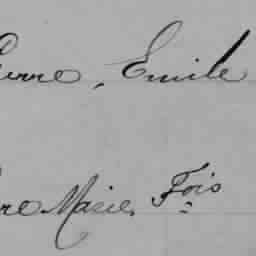 ierre, Emile
rre Marie, Fois